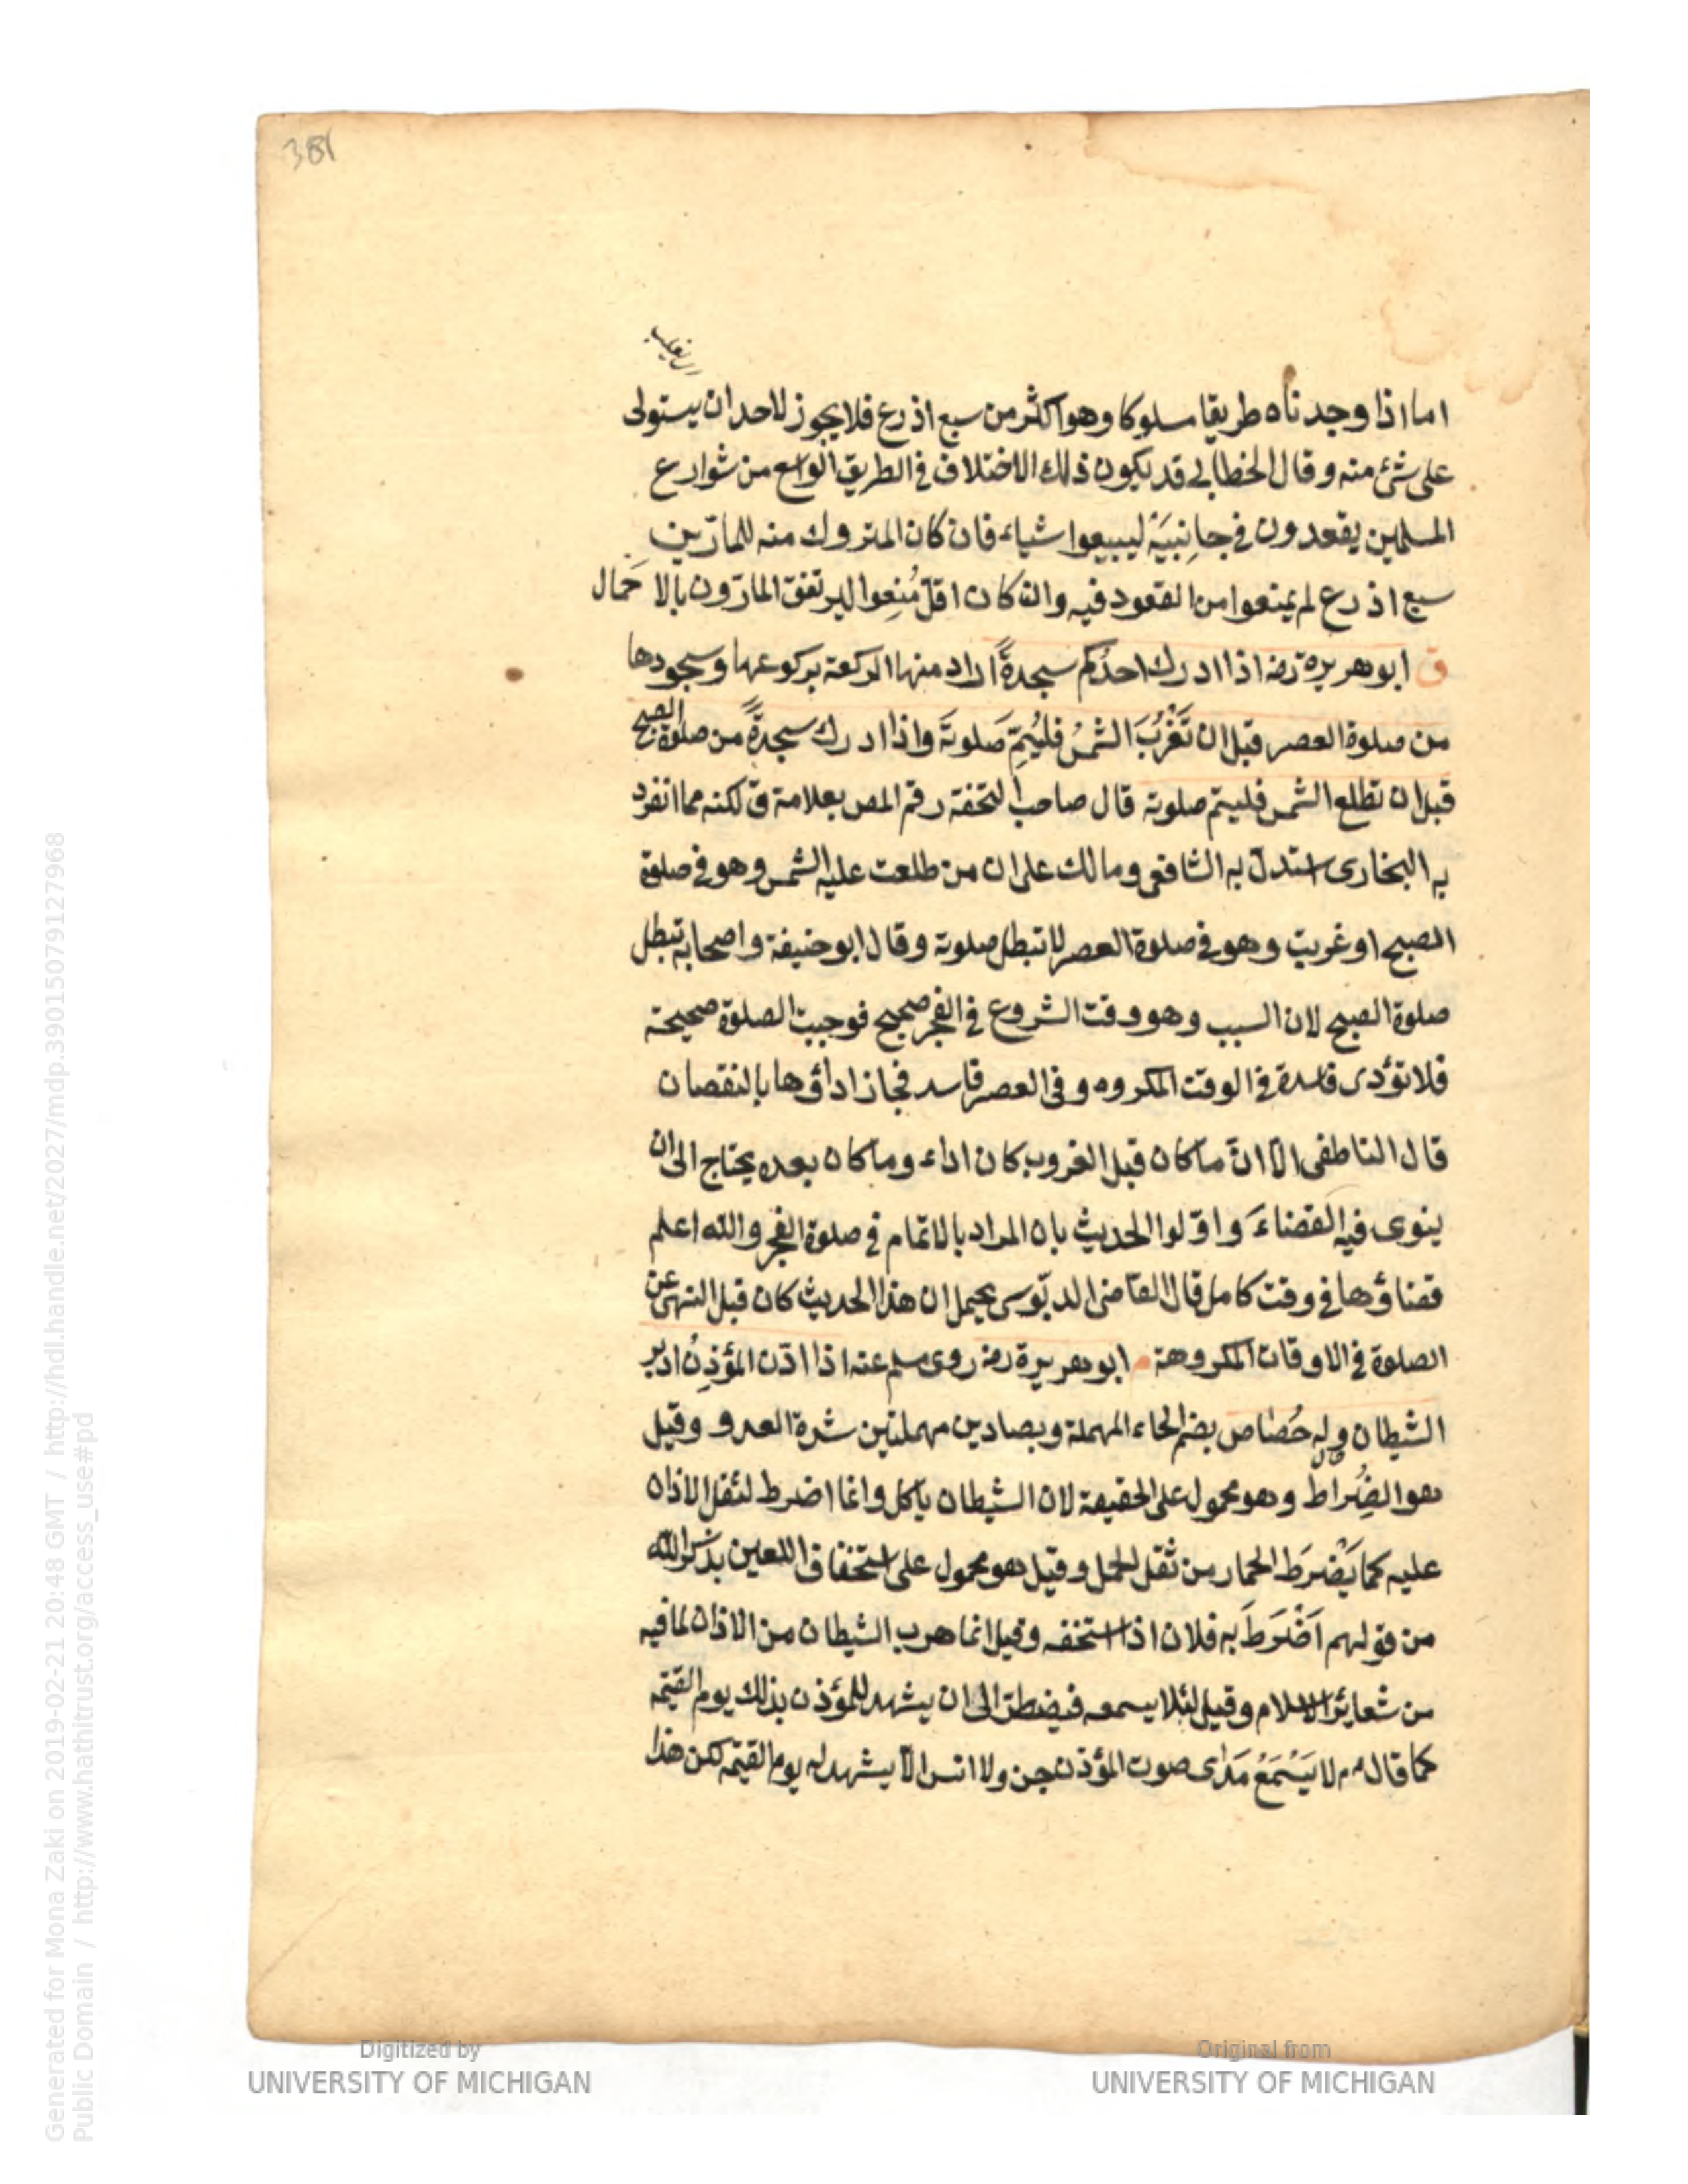 381
اما اذا وجدناه طريقا مسلوكا وهو اكثر من سبع اذرع فلا يجوز لاحد ان يستولى
على شئ منه وقال الخطابى قد يكون ذلك الاختلاف فى الطريق الواسع من شوارع
المسلمين يقعدون فى جانبيه ليبيعوا شياء فان كان المتروك منه للمارّين
سبع اذرع لم يمنعوا من القعود فيه وان كان اقلّ مُنِعوا ليرتفق المارّون بالاحمال
ق ابو هريرة رضه اذا ادرك احدُكم سجدةً اراد منها الركعة بركوعها وسجودها
من صلوة العصر قبل ان تَغْرُبَ الشمسُ فليُتِمّ صَلوتَه واذا ادرك سجدةً من صلوة الصبح
قبل ان تطلع الشمس فليتم صلوته قال صاحب التحفة رقم المص بعلامة ق لكنه مما انفرد
به البخارى استدلّ به الشافعى ومالك على ان من طلعت عليه الشمس وهو فى صلوة
الصبح او غربت وهو فى صلوة العصر لا تبطل صلوته وقال ابو حنيفة واصحابه تبطل
صلوة الصبح لان السبب وهو وقت الشروع فى الفجر صحيح فوجبت الصلوة صحيحة
فلا تؤدى فاسدة فى الوقت المكروه وفى العصر فاسد فجاز اداؤها بالنقصان
قال الناطفى الّا انّ ما كان قبل الغروب كان اداء وما كان بعده يحتاج الى ان
ينوى فيه القضاءَ واوّلوا الحديث بان المراد بالاتمام فى صلوة الفجر والله اعلم
قضاؤها فى وقت كامل قال القاضى الدبّوسى يحتمل ان هذا الحديث كان قبل النهى عن
الصلوة فى الاوقات المكروهة م ابو هريرة رضه روى مسلم عنه اذا اذّن المؤذِنُ ادبر
الشيطان وله حُصاص بضم الحاء المهملة وبصادين مهملتين شدة العدو وقيل
هو الضُراط وهو محمول على الحقيقة لان الشيطان ياكل وانما اضرط لثقل الاذان
عليه كما يَضْرَط الحمار من ثقل الحمل وقيل هو محمول على استخفاف اللعين بذكر الله
من قولهم اَضْرَطَ به فلان اذا استخفه وقيل انما هرب الشيطان من الاذان لما فيه
من شعائر الاسلام وقيل لئلا يسمعه فيضطرّ الى ان يشهد للمؤذن بذلك يوم القيمة
كما قال م لا يَسْمَعُ مَدٰى صوت المؤذن جن ولا انس الّا يشهد له يوم القيمة لكن هذا
Digitized by
UNIVERSITY OF MICHIGAN
Original from
UNIVERSITY OF MICHIGAN
Generated for Mona Zaki on 2019-02-21 20:48 GMT / http://hdl.handle.net/2027/mdp.39015079127968
Public Domain / http://www.hathitrust.org/access_use#pd